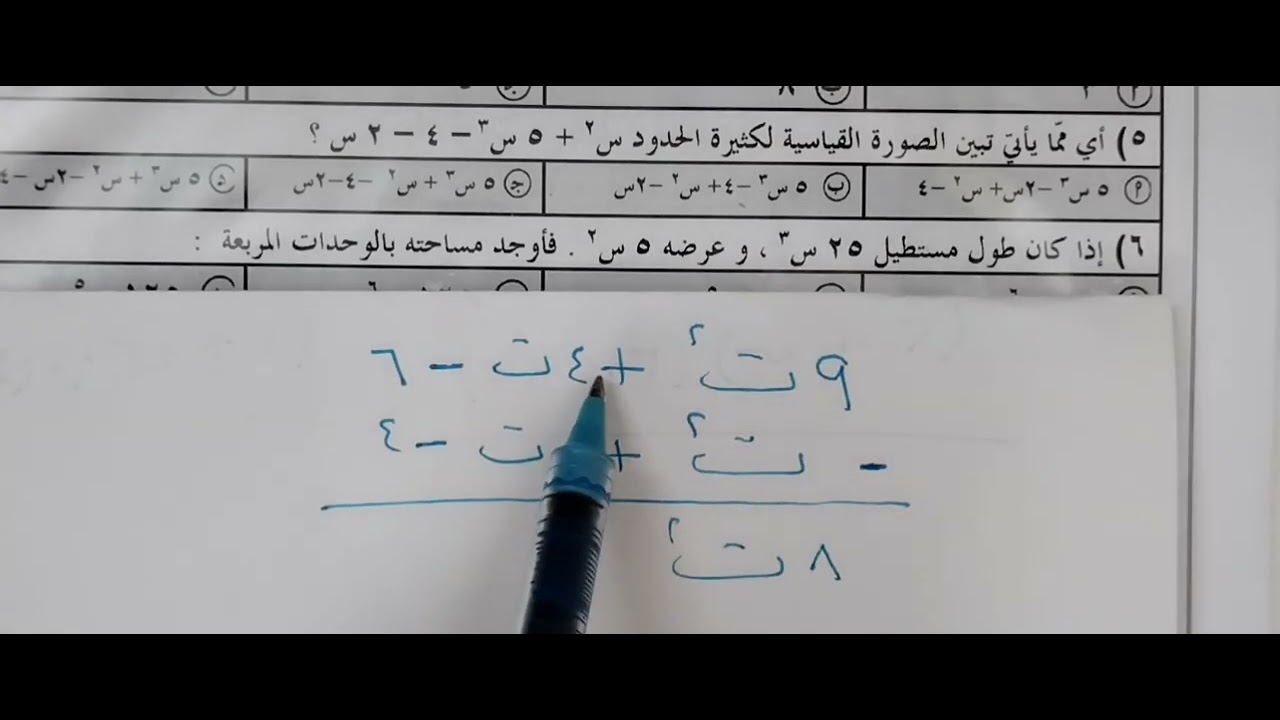 ٥) أي ممّا يأتي تبين الصورة القياسية لكثيرة الحدود س٢ + ٥ س٣ − ٤ − ٢ س ؟
أ ٥ س٣ −٢س+ س٢ −٤ ب ٥ س٣ −٤+ س٢ −٢س ج ٥ س٣ + س٢ −٤−٢س د ٥ س٣ + س٢ −٢س −٤
٦) إذا كان طول مستطيل ٢٥ س٣ ، و عرضه ٥ س٢ . فأوجد مساحته بالوحدات المربعة :
٩ ت٢ + ٤ ت − ٦
− ت٢ + ت − ٤
٨ ت٢